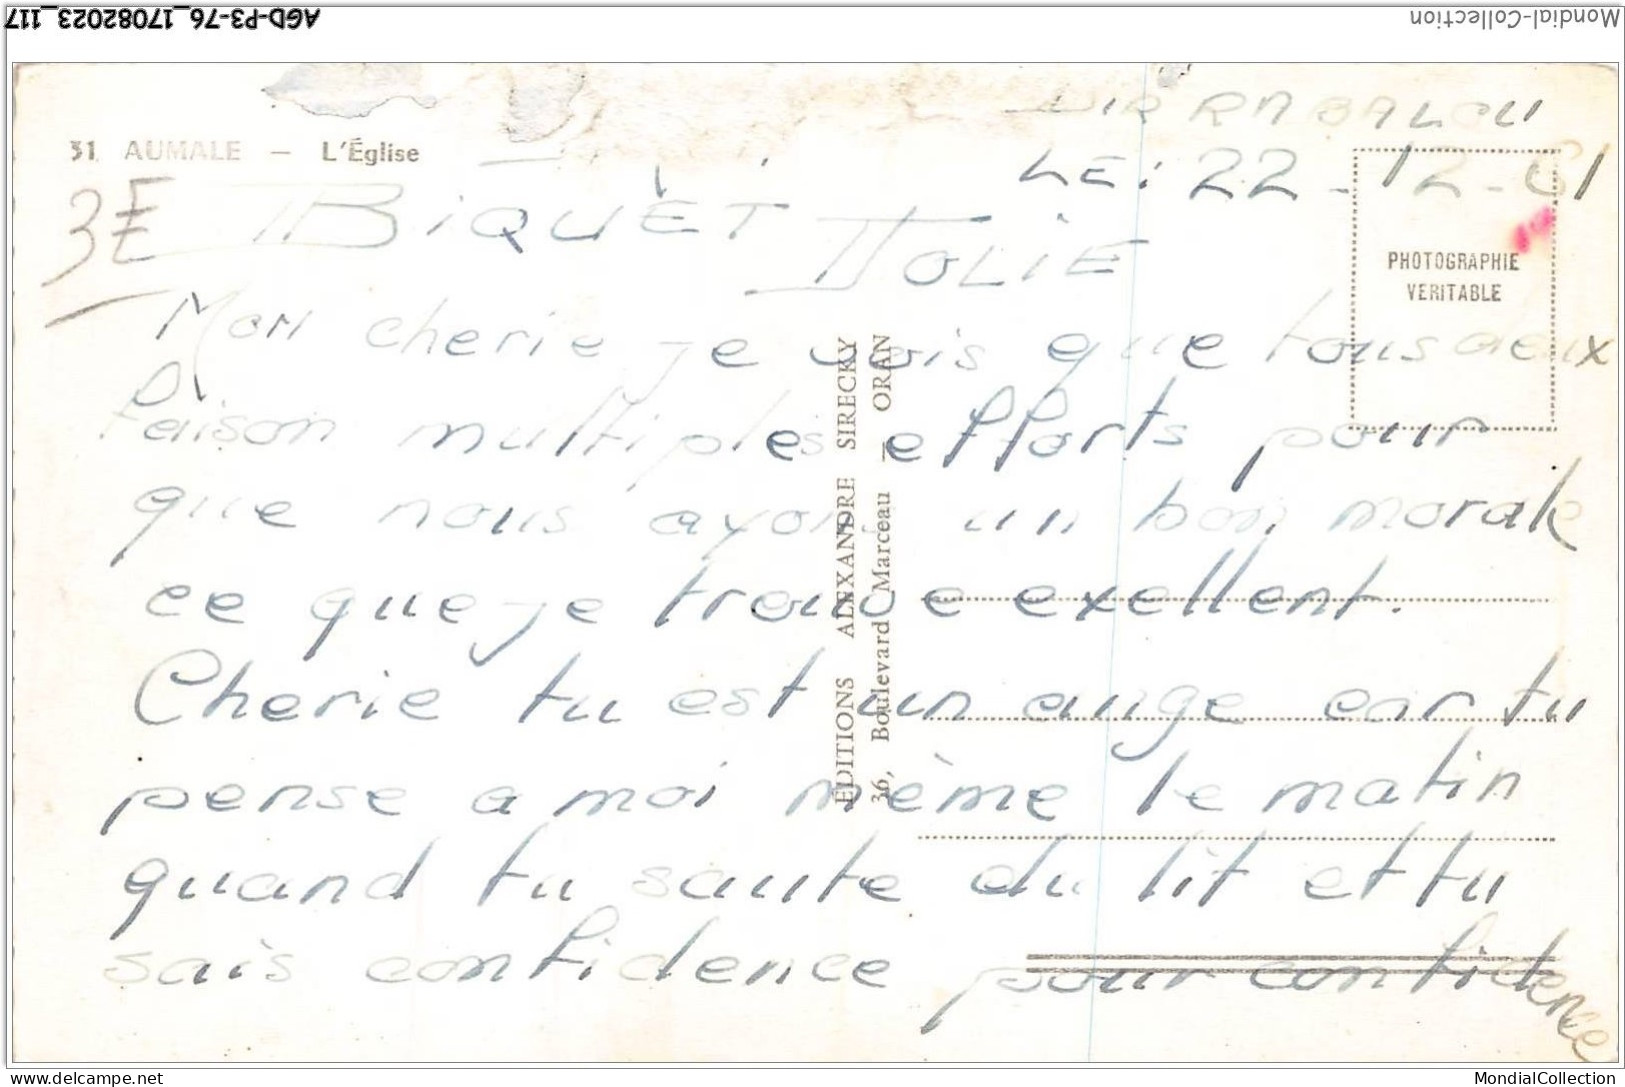 AGD-P3-76_17082023_117
Mondial-Collection
31 AUMALE — L'Église
LE: 22-12-61
3E
BIQUET JOLIE
PHOTOGRAPHIE
VERITABLE
Mon cherie je vois que tous deux
faison multiples efforts pour
que nous ayons un bon morale
ce que je trouve exellent.
Cherie tu est un ange car tu
pense a moi même le matin
quand tu saute du lit et tu
sais confidence pour confidence
ÉDITIONS ALEXANDRE SIRECKY
36, Boulevard Marceau — ORAN
www.delcampe.net
MondialCollection